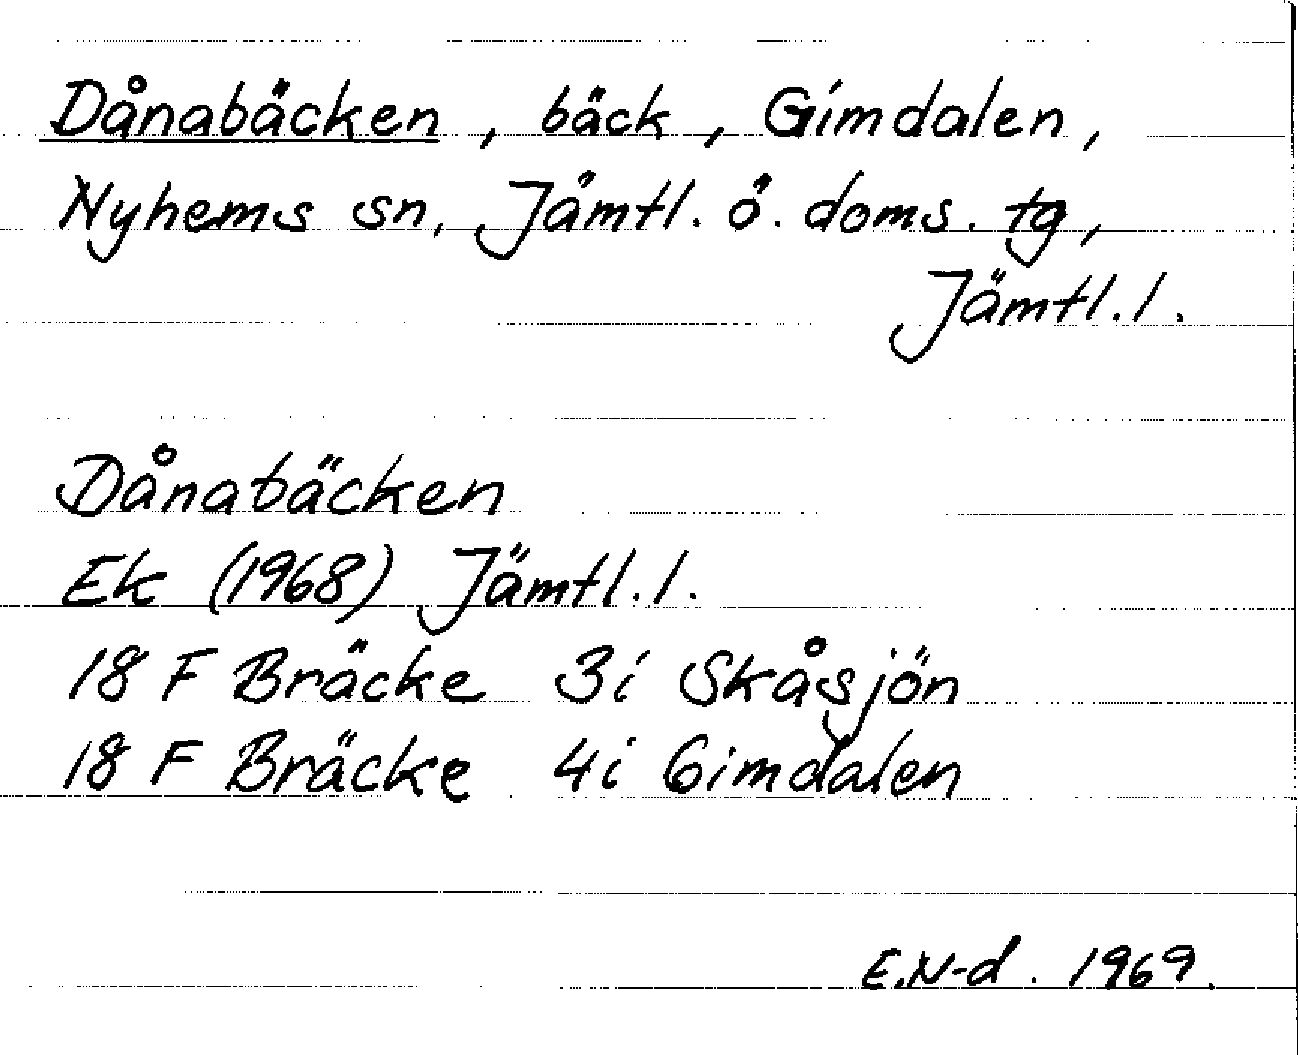 Dånabäcken, bäck, Gimdalen,
Nyhems sn, Jämtl. ö. doms. tg,
Jämtl. l.
Dånabäcken
Ek (1968) Jämtl. l.
18 F Bräcke 3i Skåsjön
18 F Bräcke 4i Gimdalen
E.N-d. 1969.